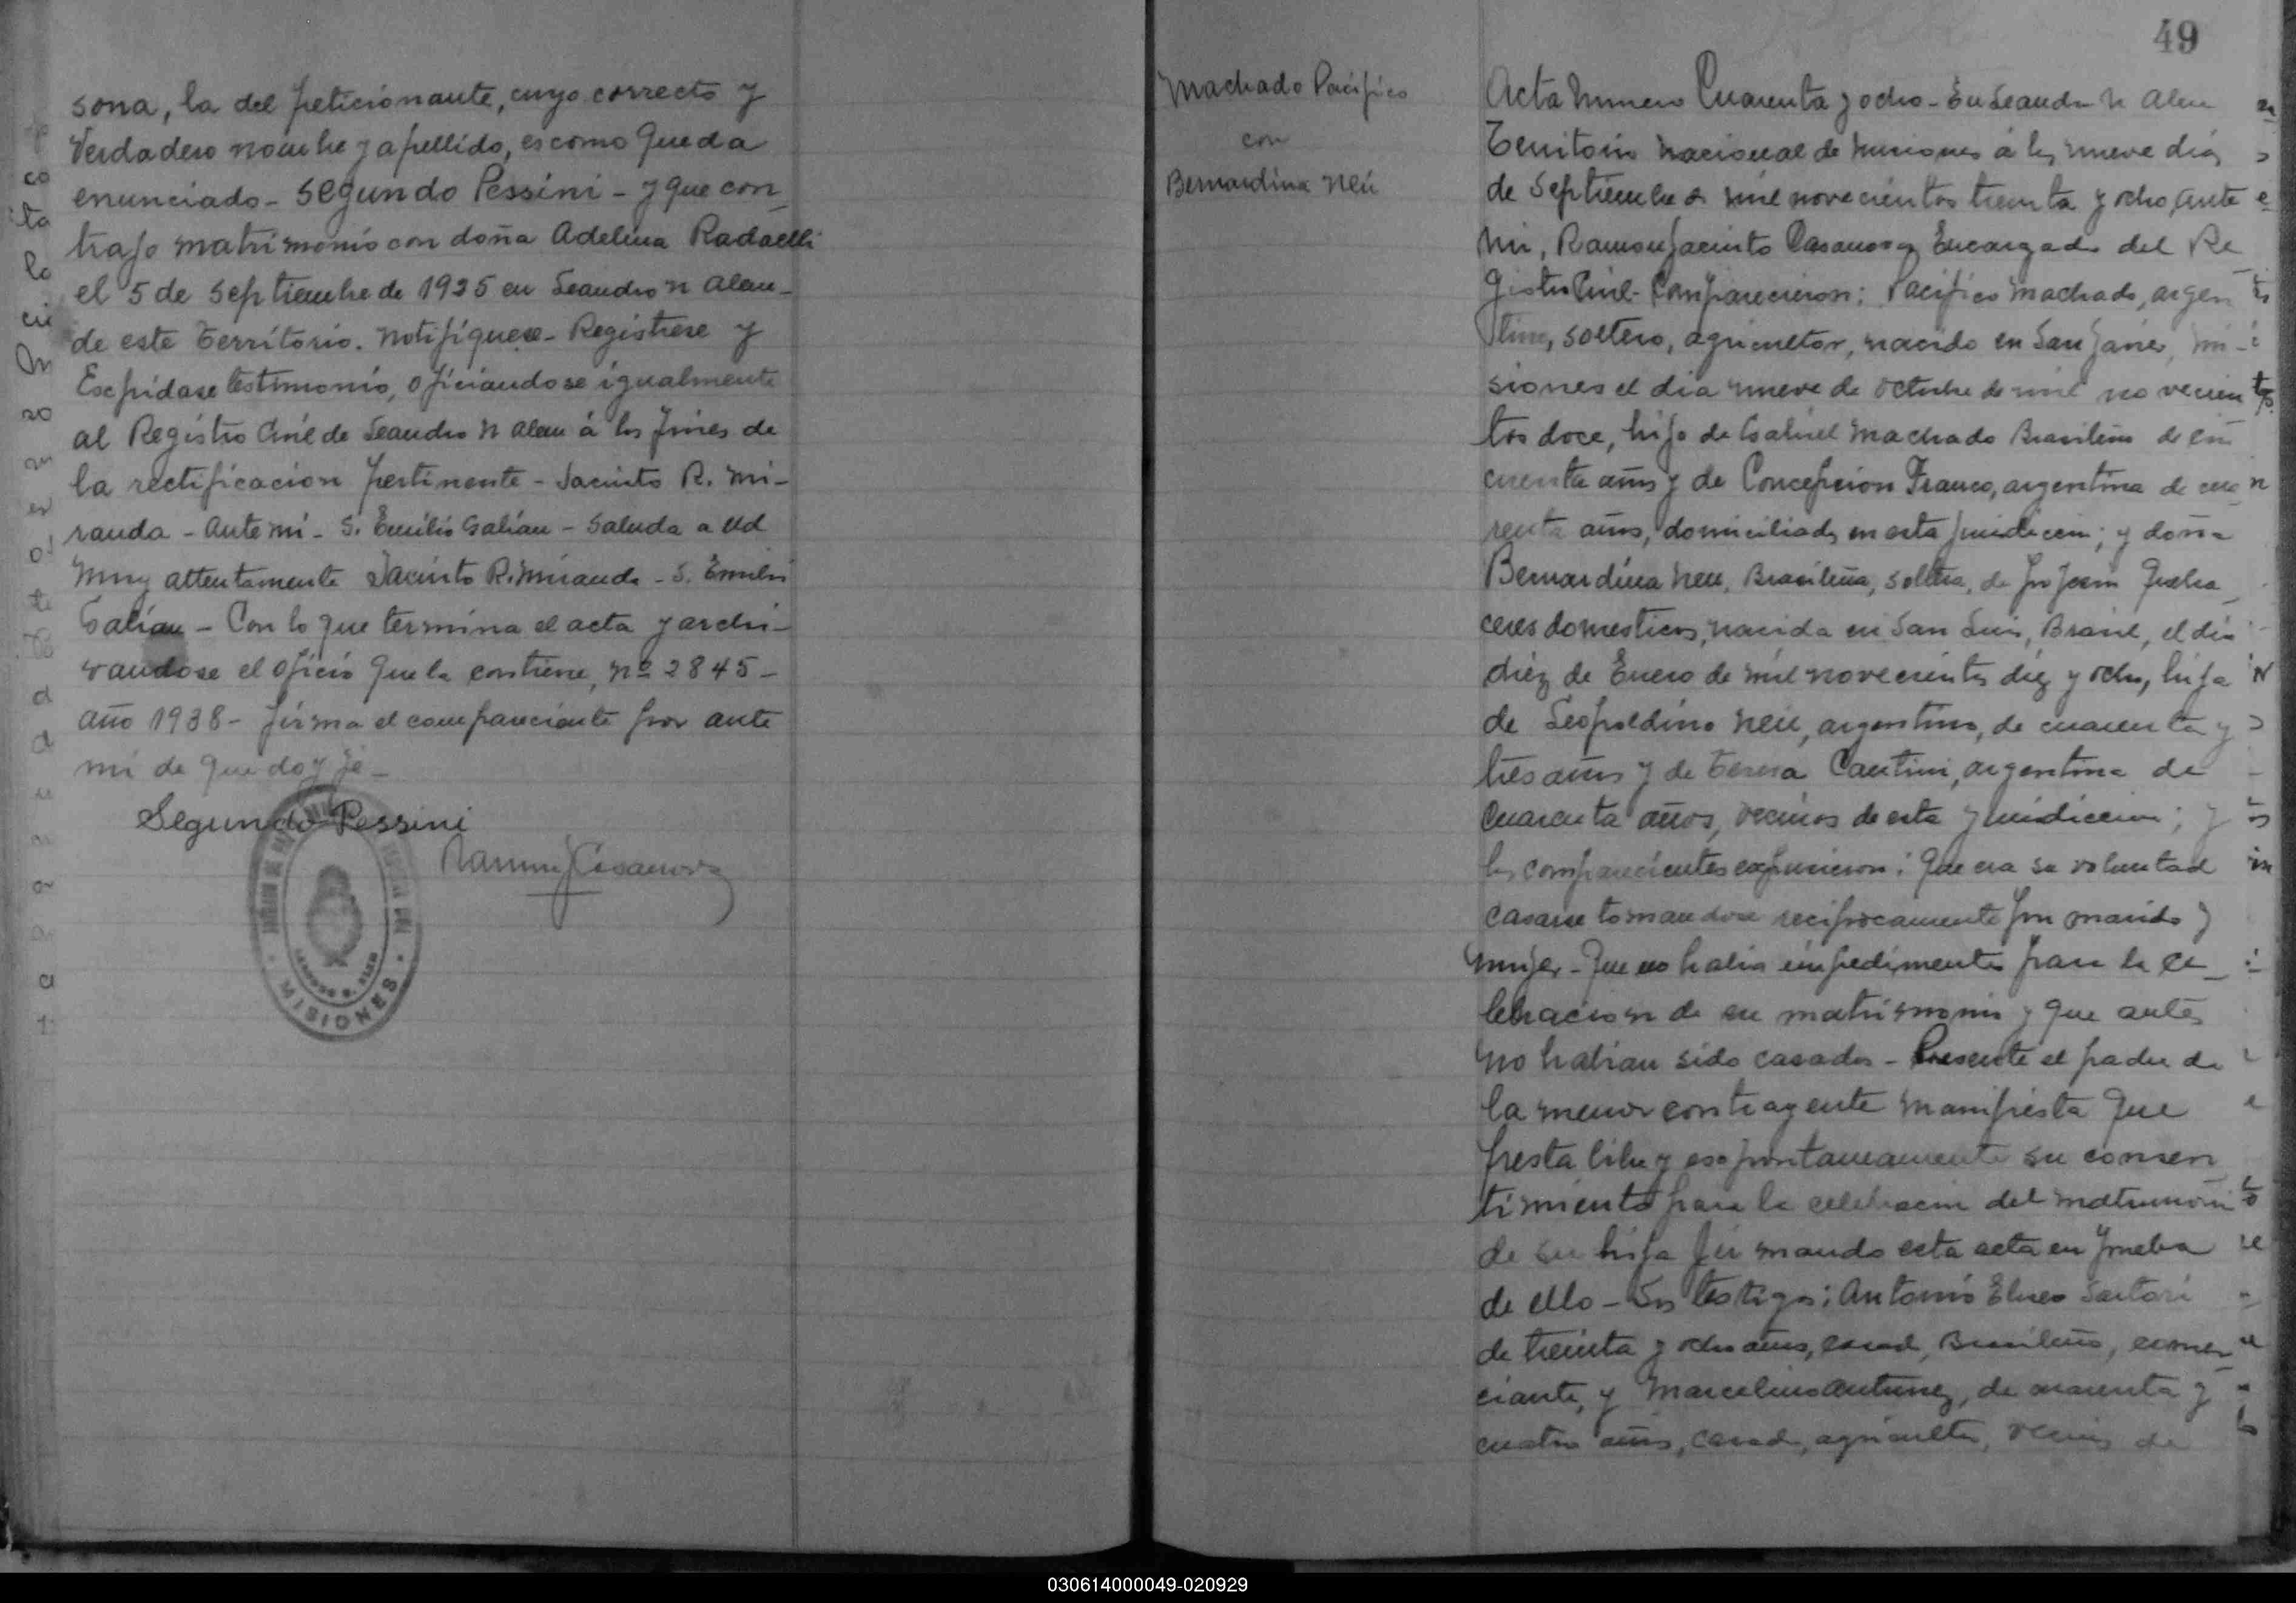 sona, la del peticionante, cuyo correcto y
verdadero nombre y apellido, es como queda
enunciado - Segundo Pessini - y que con_
trajo matrimonio con doña Adelina Radaelli
el 5 de Septiembre de 1935 en Leandro N Alem -
de este Territorio. Notifiquese - Registrese y
Expidase testimonio, oficiandose igualmente
al Registro Civil de Leandro N Alem á los fines de
la rectificacion pertinente - Jacinto R. Mi-
randa - Ante mi - S. Emilio Galian - Saluda a Ud
muy attentamente Jacinto R. Miranda - S. Emilio
Galian - Con lo que termina el acta y archi-
vandose el oficio que la contiene, Nº 2845 -
año 1938 - firma el compareciente por ante
mi de que doy fé -
Segundo Pessini
Ramon J Casanova
MISIONES
49
Machado Pacifico
con
Bernardina Neu
Acta Numero Cuarenta y ocho - En Leandro N Alem
Territorio Nacional de Misiones á los nueve dias
de Septiembre de mil novecientos treinta y ocho, ante
mi, Ramon Jacinto Casanova Encargado del Re_
gistro Civil - Comparecieron: Pacifico Machado, argen_
tino, soltero, agricultor, nacido en San Javier, Mi-
siones el dia nueve de octubre de mil novecien
tos doce, hijo de Gabriel Machado Brasileño de cin
cuenta años y de Concepcion Franco, argentina de cua_
renta años, domiciliados en esta jurisdiccion; y doña
Bernardina Neu, Brasileña, soltera, de profesion queha_
ceres domesticos, nacida en San Luis, Brasil, el dia
diez de Enero de mil novecientos diez y ocho, hija
de Leopoldino Neu, argentino, de cuarenta y
tres años y de Teresa Cantini, argentina de
cuarenta años, vecinos de esta jurisdiccion; y
los comparecientes expusieron: Que era su voluntad
casarse tomandose reciprocamente por marido y
mujer - Que no habia impedimento para la ce_
lebracion de su matrimonio y que antes
no habian sido casados - Presente el padre de
la menor contrayente manifiesta que
presta libre y espontaneamente su consen
timiento para la celebracion del matrimonio
de su hija firmando esta acta en prueba
de ello - Los testigos: Antonio Eliseo Sartori
de treinta y ocho años, casado, Brasileño, comer_
ciante, y Marcelino Antunez, de cuarenta y
cuatro años, casado, agricultor, vecinos de
030614000049-020929